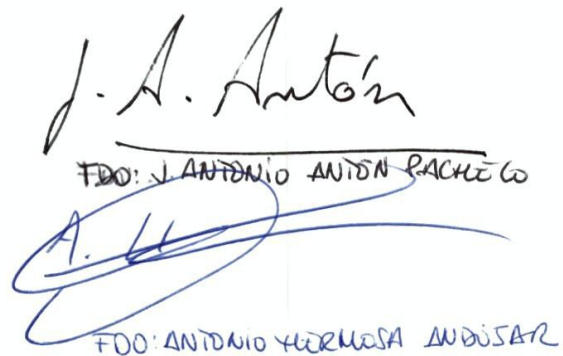 J. A. Antón
FDO: J ANTONIO ANTÓN PACHECO
A. H
FDO: ANTONIO HERMOSA ANDÚJAR